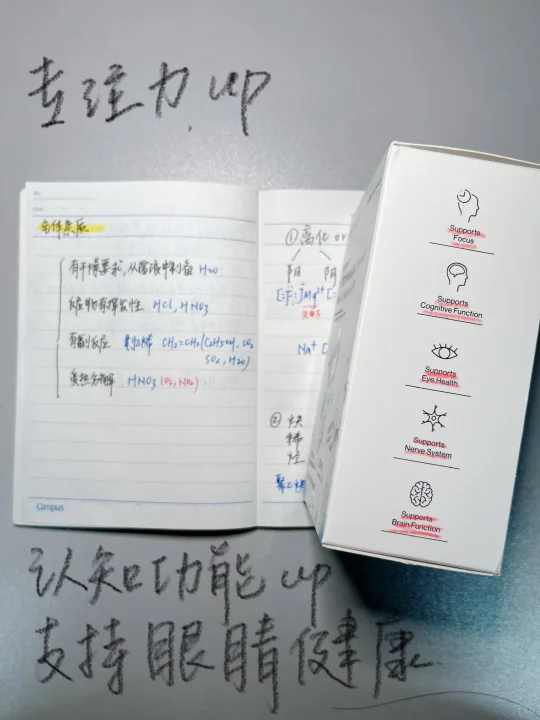 专注力 up
气体杂质
有干燥要求,从溶液中制备 H₂O
反应物有挥发性 HCl, HNO₃
有副反应 制乙烯 CH₂=CH₂(C₂H₅OH, CO₂
SO₂, H₂O)
受热分解 HNO₃(O₂, NO₂).
Campus
① 离化 or
阳 阴
Mg²⁺
Na⁺ [
②
Supports
Focus
Supports
Cognitive Function
Supports
Eye Health
Supports
Nerve System
Supports
Brain Function
认知功能 up
支持眼睛健康